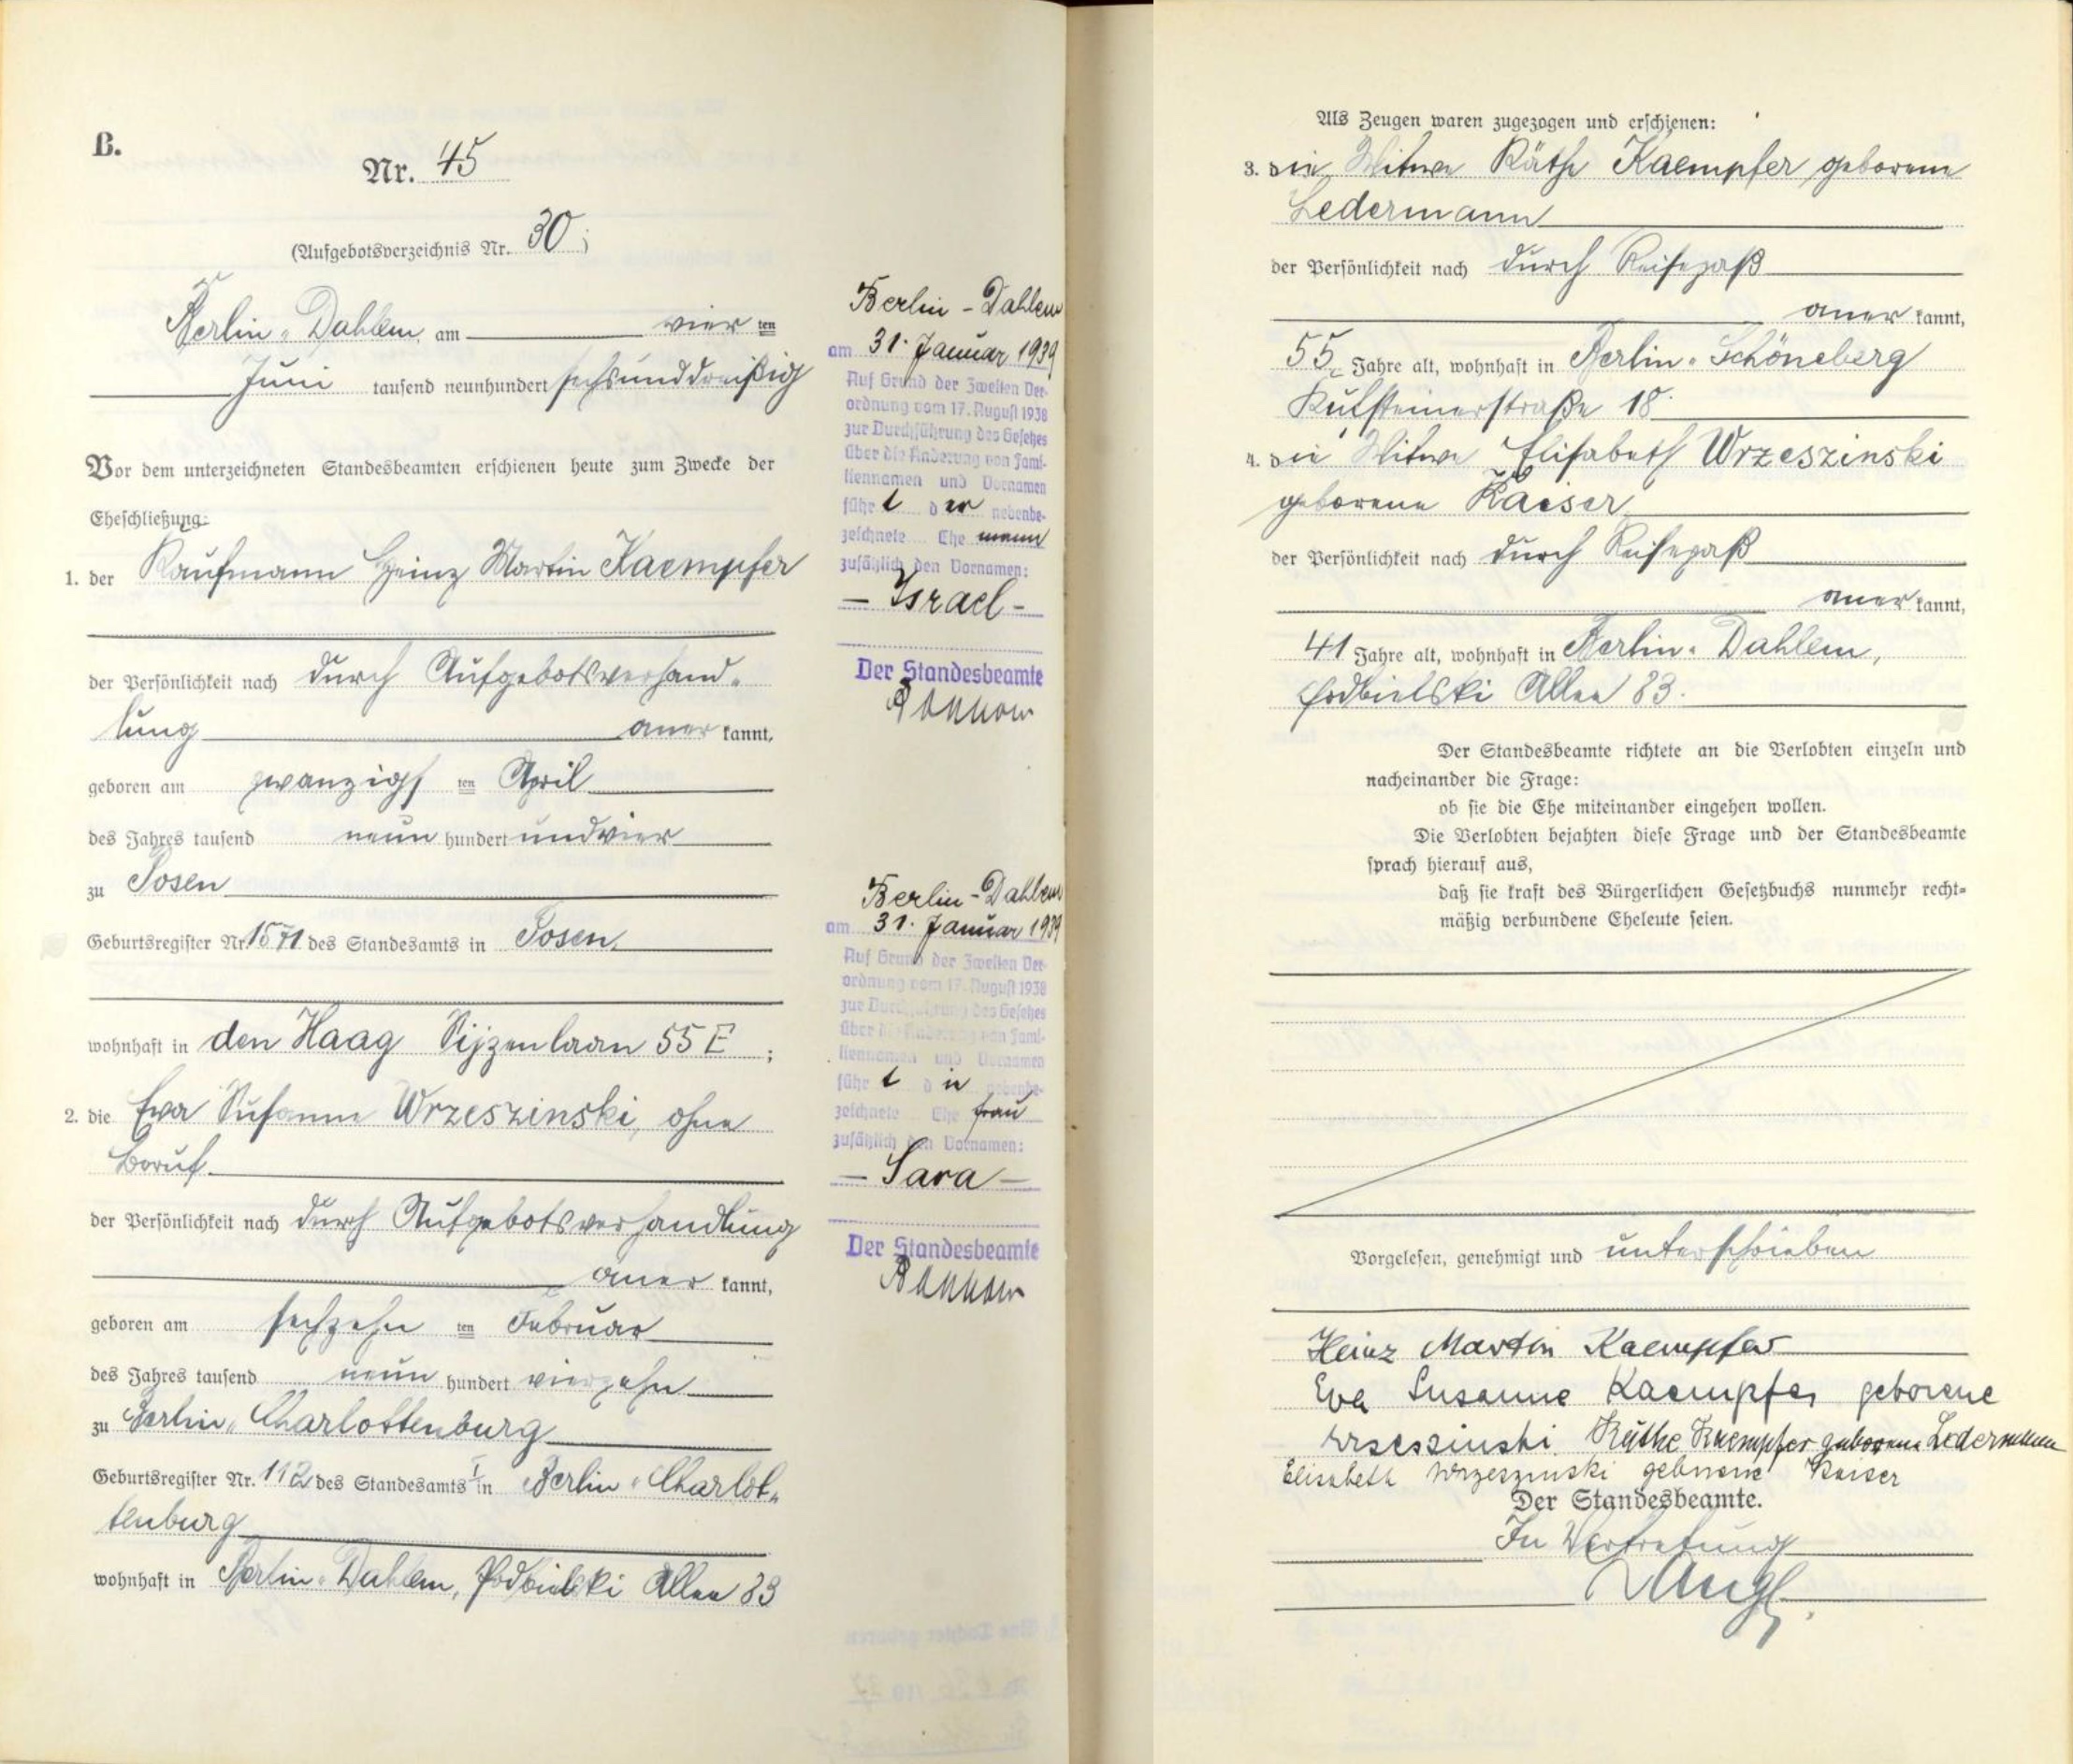 B.
Nr. 45
(Aufgebotsverzeichnis Nr. 30)
Berlin-Dahlem, am vier ten
Juni tausend neunhundert sechsunddreißig
Vor dem unterzeichneten Standesbeamten erschienen heute zum Zwecke der
Eheschließung:
1. der Kaufmann Heinz Martin Kaempfer
der Persönlichkeit nach durch Aufgebotsverhand-
lung aner kannt,
geboren am zwanzigs ten April
des Jahres tausend neun hundert undvier
zu Posen
Geburtsregister Nr. 1571 des Standesamts in Posen,
wohnhaft in den Haag 55 E;
2. die Eva Susanne Wrzeszinski, ohne
Beruf
der Persönlichkeit nach durch Aufgebotsverhandlung
aner kannt,
geboren am sechzehn ten Februar
des Jahres tausend neun hundert vierzehn
zu Berlin-Charlottenburg
Geburtsregister Nr. 112 des Standesamts I in Berlin-Charlot-
tenburg
wohnhaft in Berlin-Dahlem, Podbielski Allee 83
Berlin-Dahlem
am 31. Januar 1939
Auf Grund der Zweiten Ver-
ordnung vom 17. August 1938
zur Durchführung des Gesetzes
über die Änderung von Fami-
liennamen und Vornamen
führ t d er nebenbe-
zeichnete Ehe mann
zusätzlich den Vornamen:
- Israel -
Der Standesbeamte
Berlin-Dahlem
am 31. Januar 1939
Auf Grund der Zweiten Ver-
ordnung vom 17. August 1938
zur Durchführung des Gesetzes
über die Änderung von Fami-
liennamen und Vornamen
führ t d ie nebenbe-
zeichnete Ehe frau
zusätzlich den Vornamen:
- Sara -
Der Standesbeamte
Als Zeugen waren zugezogen und erschienen:
3. die Witwe Käthe Kaempfer geborene
Ledermann
der Persönlichkeit nach durch Reisepaß
aner kannt,
55 Jahre alt, wohnhaft in Berlin-Schöneberg
Kufsteinerstraße 18.
4. die Witwe Elisabeth Wrzeszinski
geborene Kaiser
der Persönlichkeit nach durch Reisepaß
aner kannt,
41 Jahre alt, wohnhaft in Berlin-Dahlem,
Podbielski Allee 83.
Der Standesbeamte richtete an die Verlobten einzeln und
nacheinander die Frage:
ob sie die Ehe miteinander eingehen wollen.
Die Verlobten bejahten diese Frage und der Standesbeamte
sprach hierauf aus,
daß sie kraft des Bürgerlichen Gesetzbuchs nunmehr recht-
mäßig verbundene Eheleute seien.
Vorgelesen, genehmigt und unterschrieben
Heinz Martin Kaempfer
Eva Susanne Kaempfer geborene
Wrzeszinski Käthe Kaempfer geborene Ledermann
Elisabeth Wrzeszinski geborene Kaiser
Der Standesbeamte.
In Vertretung